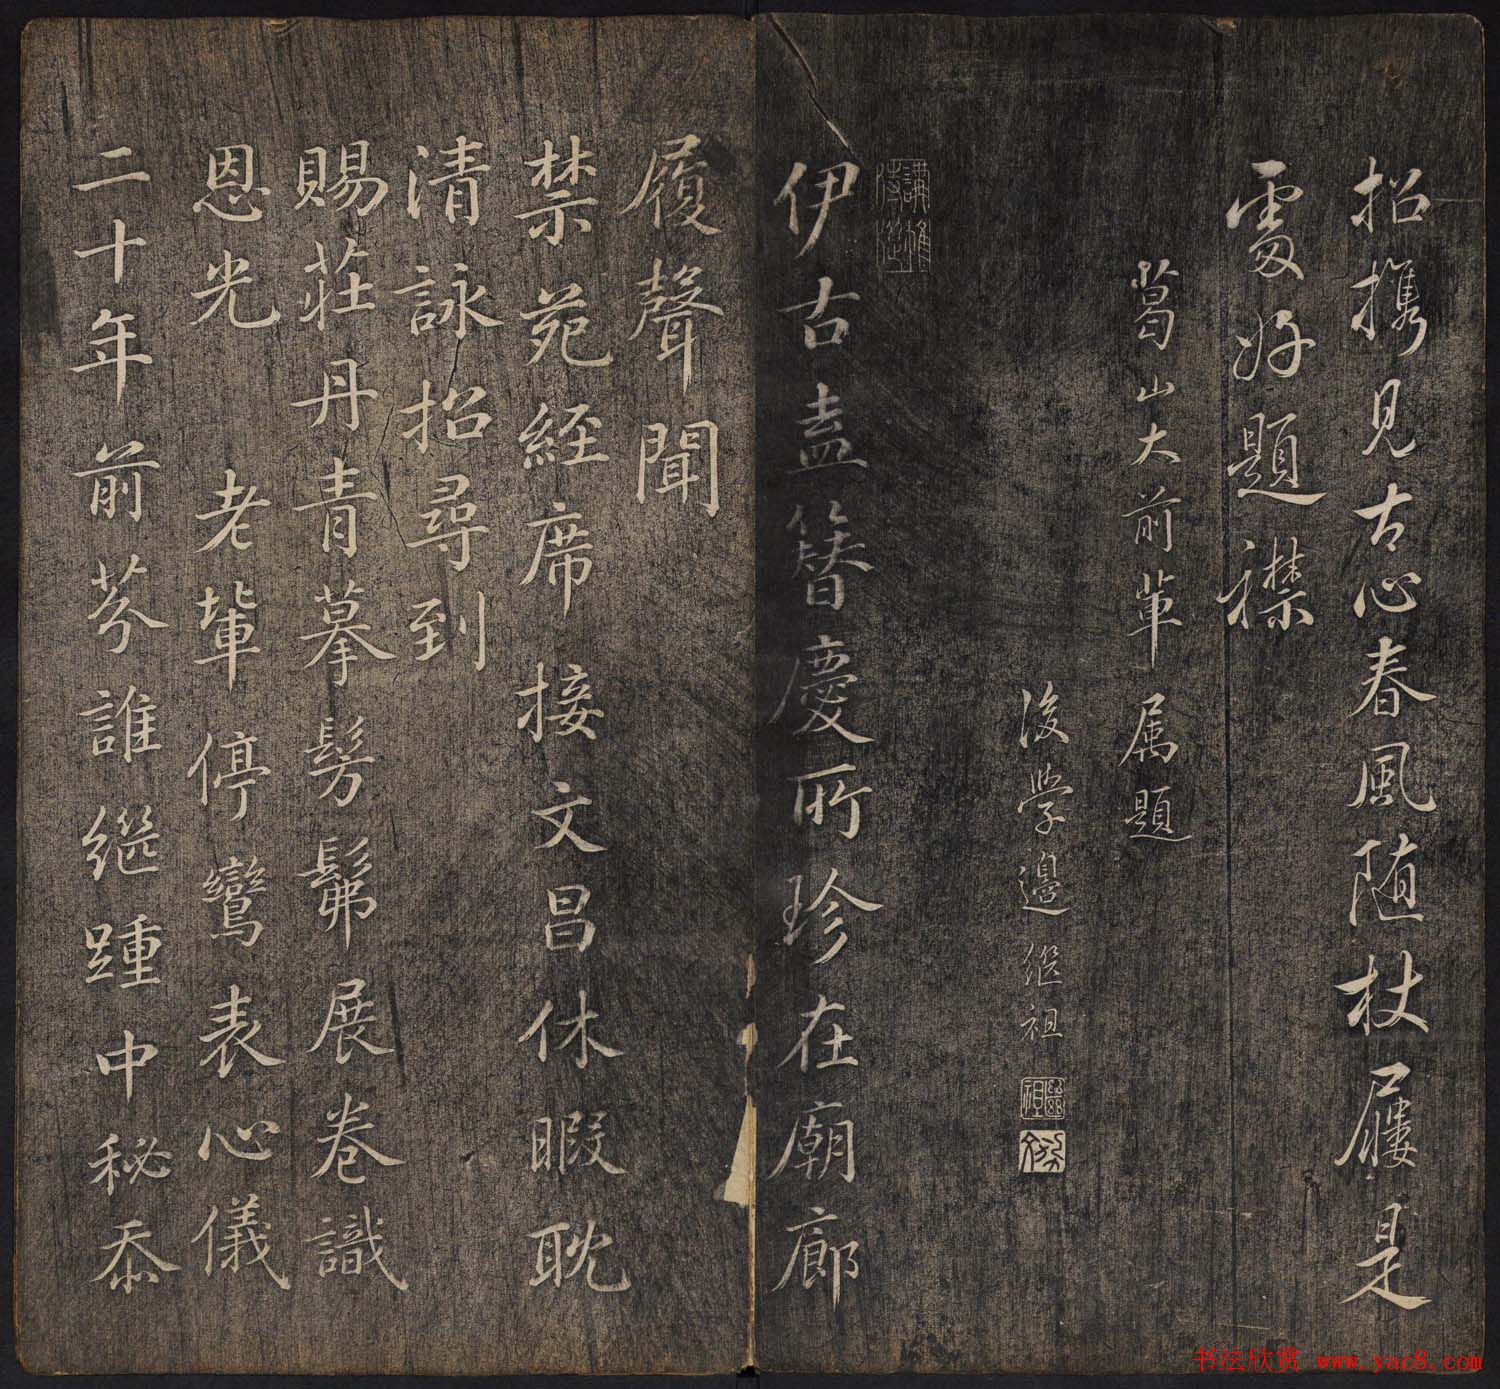 招携見古心春風随杖屨是
處好題襟
葛山大前軰属題
後學邉継祖
繼祖
伊古盍簪慶所珍在廟廊
履聲聞
禁苑経席接文昌休暇耽
清詠招尋到
賜莊丹青摹髣髴展巻識
恩光 老軰停鸞表心儀
二十年前芬誰継踵中秘忝
书法欣赏 www.yac8.com